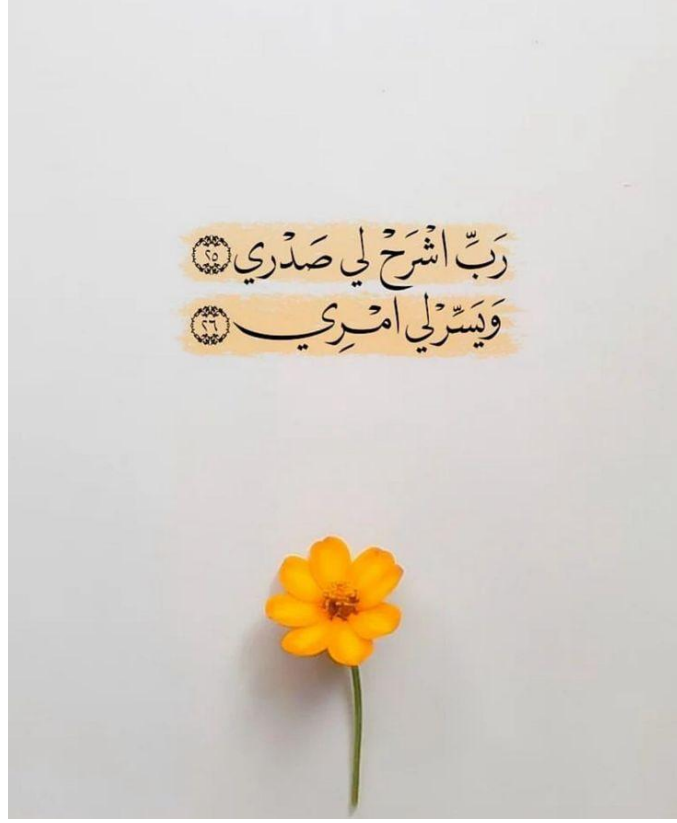 رَبِّ اشْرَحْ لِي صَدْري ٢٥
وَيَسِّرْ لي امْرِي ٢٦